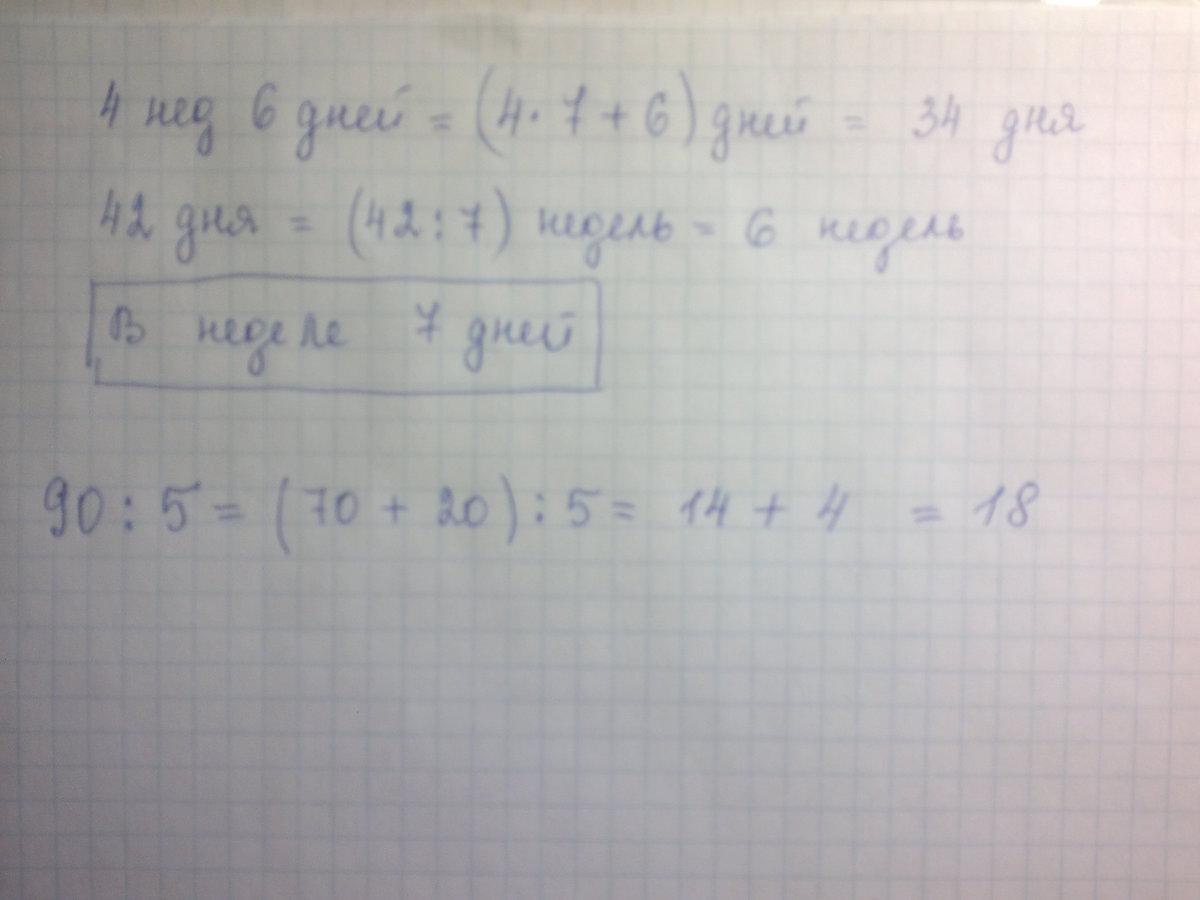 4 нед 6 дней = (4 · 7 + 6) дней = 34 дня
42 дня = (42 : 7) недель = 6 недель
В неделе 7 дней
90 : 5 = (70 + 20) : 5 = 14 + 4 = 18